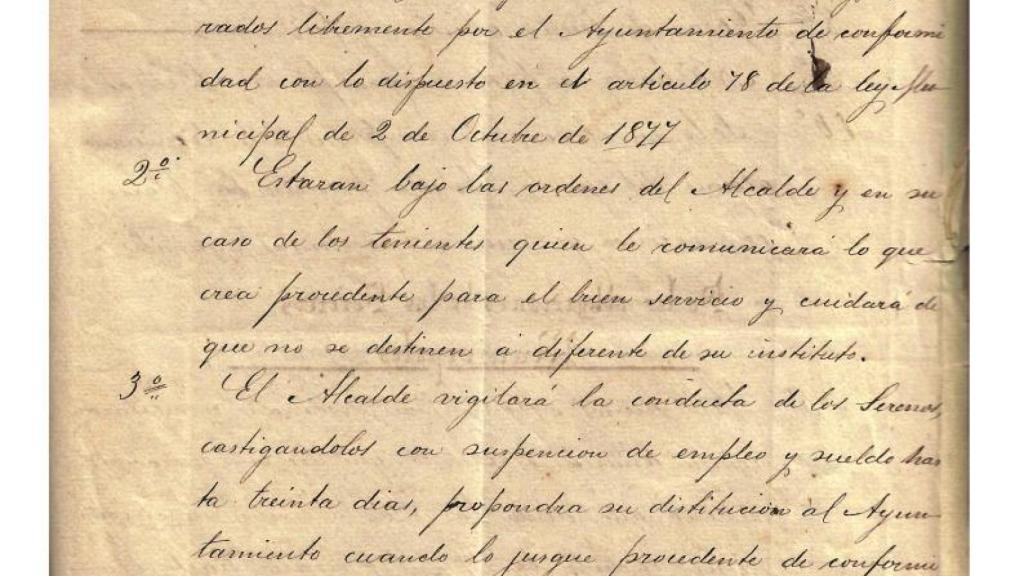 rados libremente por el Ayuntamiento de conformi
dad con lo dispuesto en el articulo 78 de la ley Mu
nicipal de 2 de Octubre de 1877
2º Estaran bajo las ordenes del Alcalde y en su
caso de los tenientes quien le comunicará lo que
crea procedente para el buen servicio y cuidará de
que no se destinen á diferente de su instituto.
3º El Alcalde vigilará la conducta de los Serenos,
castigandolos con suspencion de empleo y sueldo has
ta treinta dias, propondra su distitucion al Ayun
tamiento cuando lo jusgue procedente de conformi